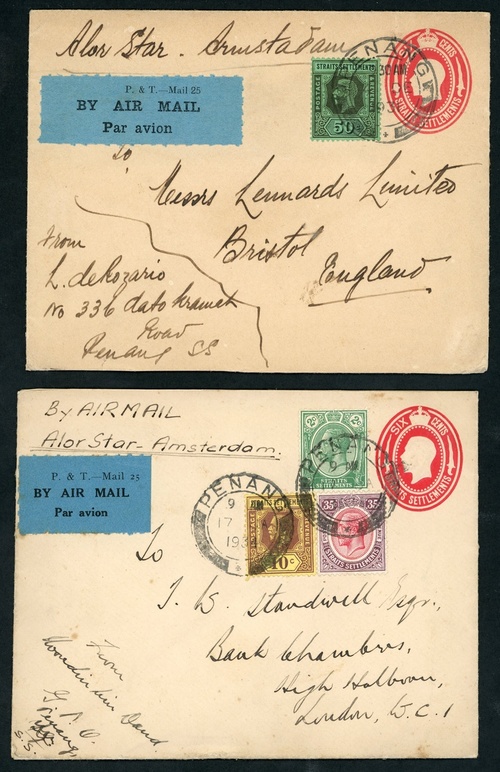 Alor Star - Armstadam
P. & T.—Mail 25
BY AIR MAIL
Par avion
STRAITS SETTLEMENTS
POSTAGE
REVENUE
50
PENANG
CENTS
STRAITS SETTLEMENTS
To
Messrs Lennards Limited
Bristol
England
From
L. deRozario
No 336 dato kramat
Road
Penang SS
By AIRMAIL
Alor Star - Amsterdam.
P. & T.—Mail 25
BY AIR MAIL
Par avion
2c
2c
STRAITS
SETTLEMENTS
SIX CENTS
STRAITS SETTLEMENTS
PENANG
9 AM
17
193
PENANG
10c
35
35
STRAITS SETTLEMENTS
To
T. W. Standwell Esqr.,
Bank Chambers,
High Holborn,
London, W.C. 1
From
G. P. O.
Penang,
S.S.